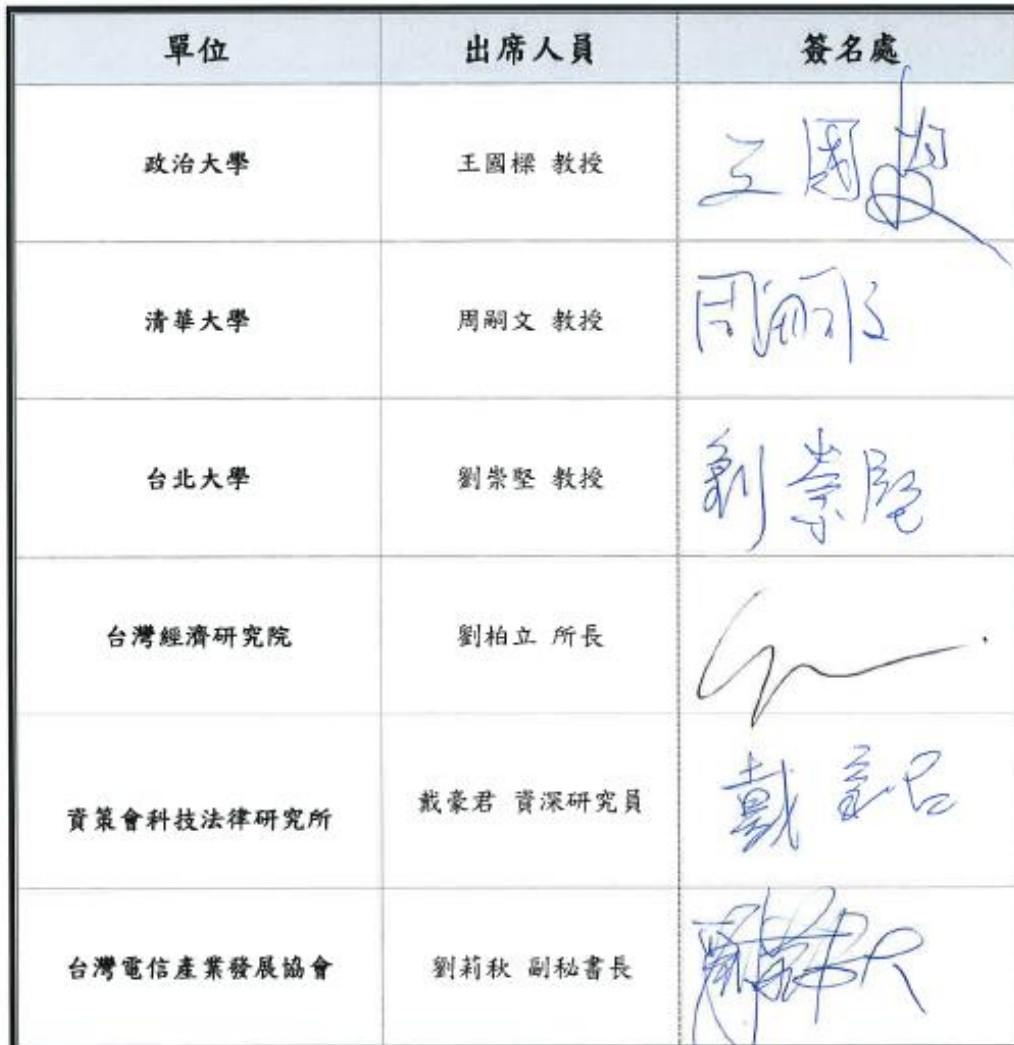 單位 出席人員 簽名處
政治大學 王國樑 教授 王國樑
清華大學 周嗣文 教授 周嗣文
台北大學 劉崇堅 教授 劉崇堅
台灣經濟研究院 劉柏立 所長
資策會科技法律研究所 戴豪君 資深研究員 戴豪君
台灣電信產業發展協會 劉莉秋 副秘書長 劉莉秋